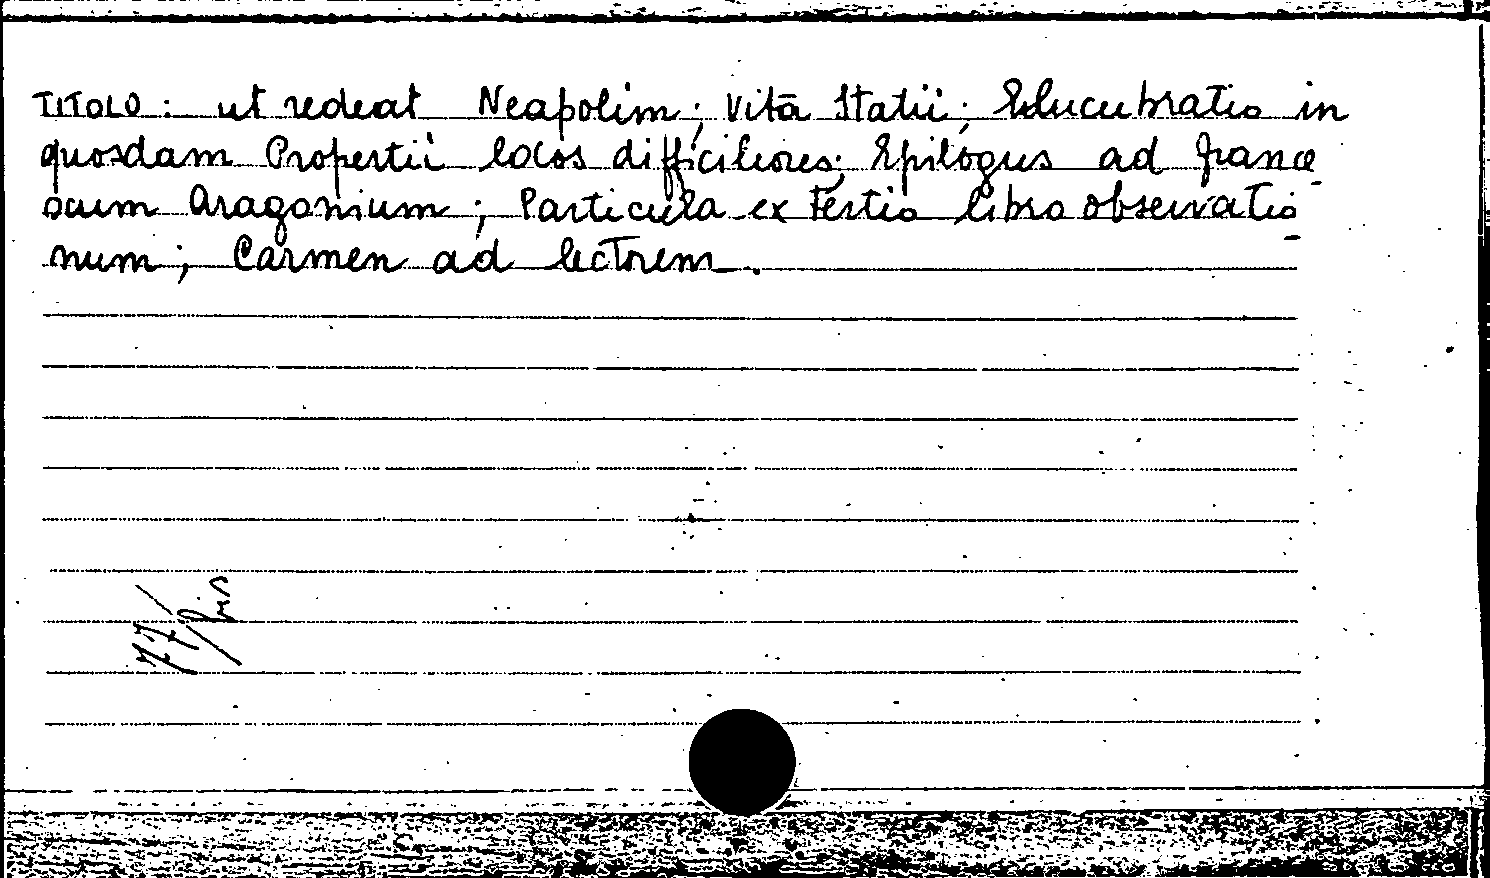 TITOLO: ut redeat Neapolim; Vita Statii; Elucubratio in
quosdam Propertii locos difficiliores; Epilogus ad franci
scum Aragonium; Particula ex Tertio libro observatio
num; Carmen ad lectorem.
77/
/bis